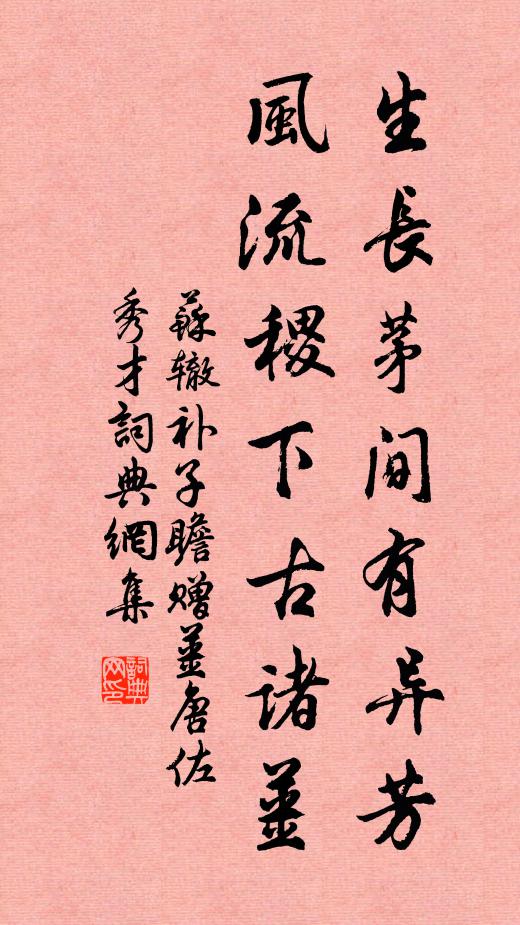 生長茅間有异芳
風流稷下古諸薑
蘇辙补子瞻赠薑唐佐
秀才詞典網集
詞典网印